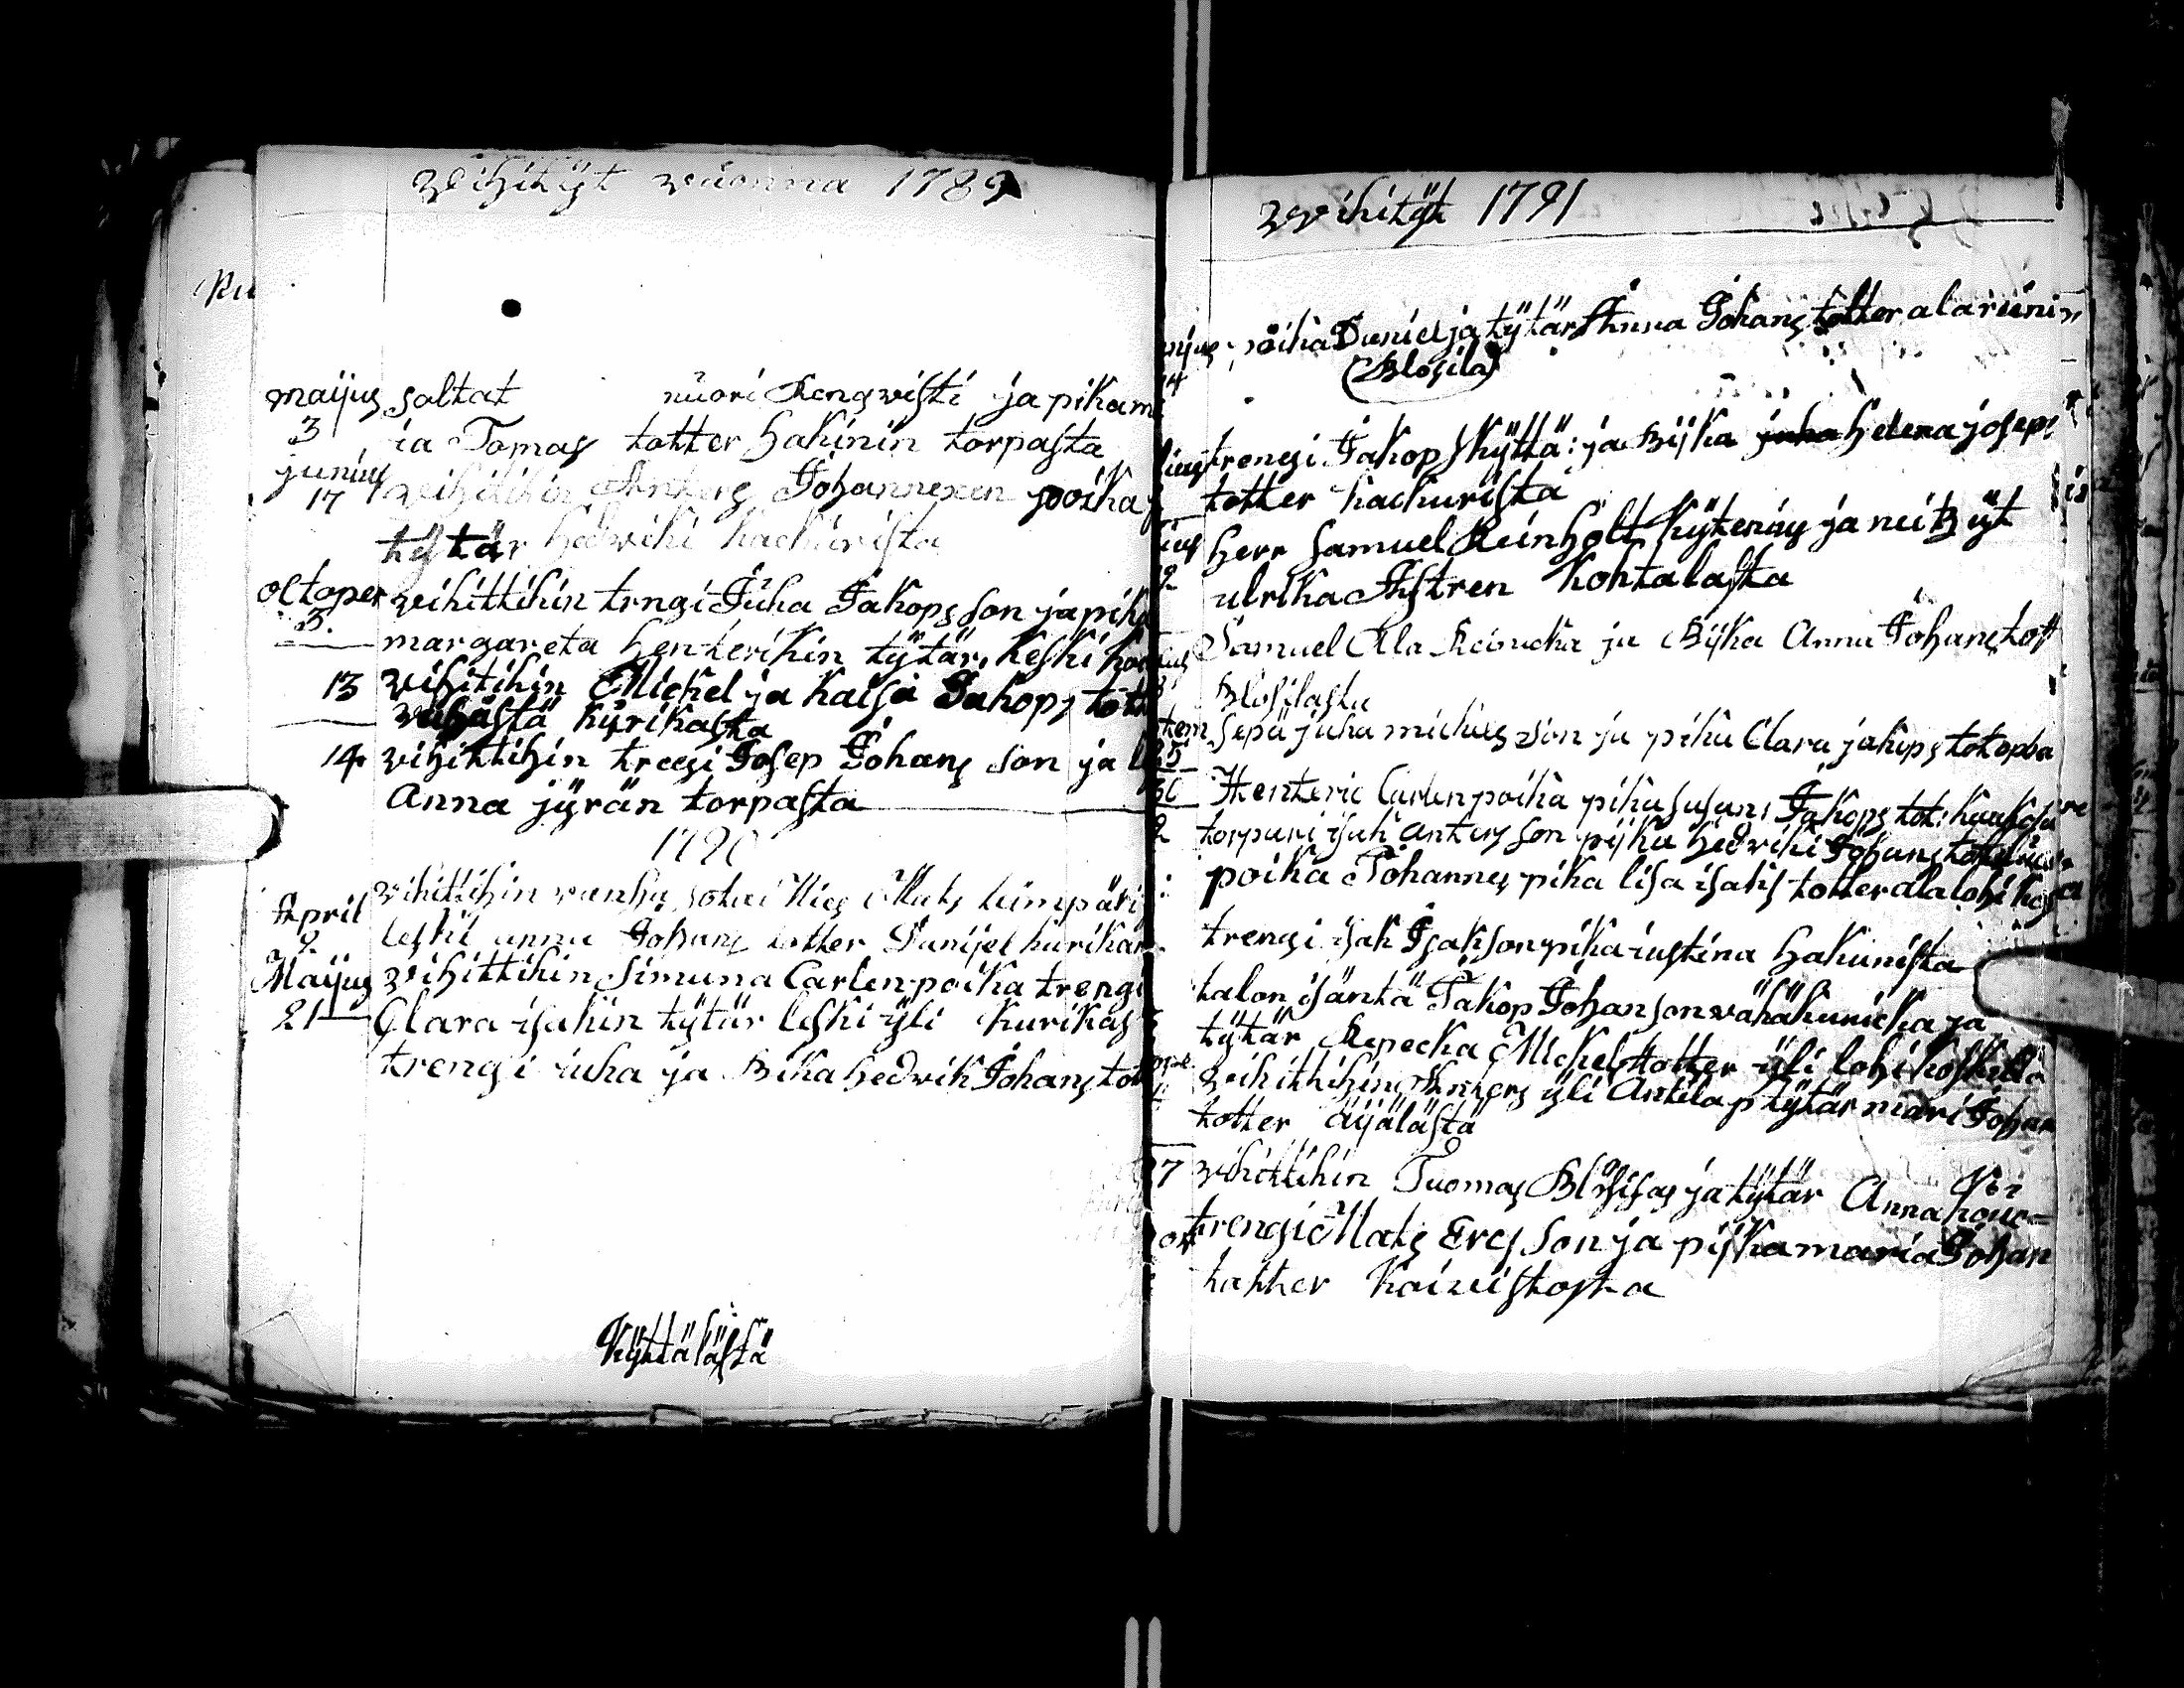 vihityt vuonna 1789
maijus saltat nuori Rengvisti ja pikam
3 ia Tomas totter hakinin torpasta
junius
17 vihitihin Anters Johannexen poika
tytär hedvihi kackurista
octoper vihittihin trngi Juha Jakops son ja pika
3. margareta henterikin tytär, keski
13 vihitihin Mickel ja kaisa Jakops tott
vähästä kyrikasta
14 vihittihin treegi Josep Johans son ja
Anna jyrän torpasta
1790
April vihittihin vanha Mats
2 leski anna Johans totter Danijel kurikan
Maijus vihittihin Simuna Carlen poika trengi
21 Clara isakin tytär leski yli kurikas
trengi iuha ja Bika hedvik Johans tott
Kyttälästä
vvihityt 1791
poika Daniel ja tytär Anna Johans totter ala riini
14 (Blosila)
trengi Jakop Kyttä: ja Bijka juha helena josep
totter kackurista
herr Samuel Reinholt Kytenius ja neitzyt
2 ulrika Astren kohtalasta
Samuel Ala Reincka ja Bijka Anna Johans tott
Blosilasta
sepä juha mickels son ja pika Clara jakops tot
25
30 Henteric Carlen poika pika susana Jakops tot:
2 torpari isak anters son pijka hedviki Johans
poika Johannes pika lisa isakis totter ala lohikos
trengi isak Isakson pika iustina hakunista
talon isäntä Jakop Johanson vähäkunicka ja
tytär Repecka Mickels totter yli lohikoskelta
vihittihin Anters yli Antila p tytär mari Johan
totter äijälästä
27 vihittihin Tuomas Blosisas ja tytär Anna
trengi Mats Ercs son ja pijka maria Johan
totter Koivistosta